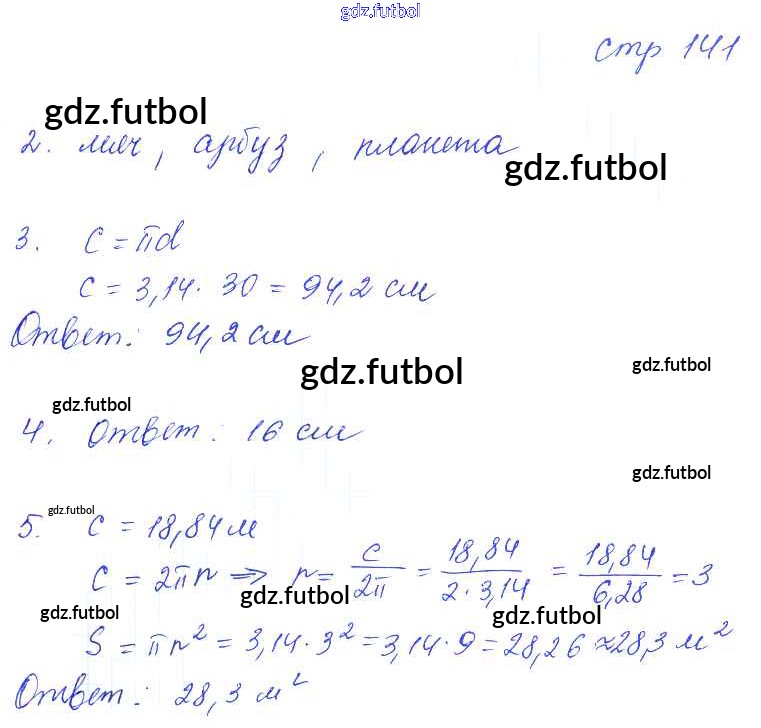 gdz.futbol
стр 141
gdz.futbol
2. мяч, арбуз, планета
gdz.futbol
3. C = πd
C = 3,14 · 30 = 94,2 см
Ответ: 94,2 см
gdz.futbol
gdz.futbol
gdz.futbol
4. Ответ: 16 см
gdz.futbol
gdz.futbol
5. C = 18,84 м
C = 2πr => r = C/2π = 18,84/2·3,14 = 18,84/6,28 = 3
gdz.futbol
gdz.futbol
gdz.futbol
S = πr² = 3,14 · 3² = 3,14 · 9 = 28,26 ≈ 28,3 м²
Ответ: 28,3 м²